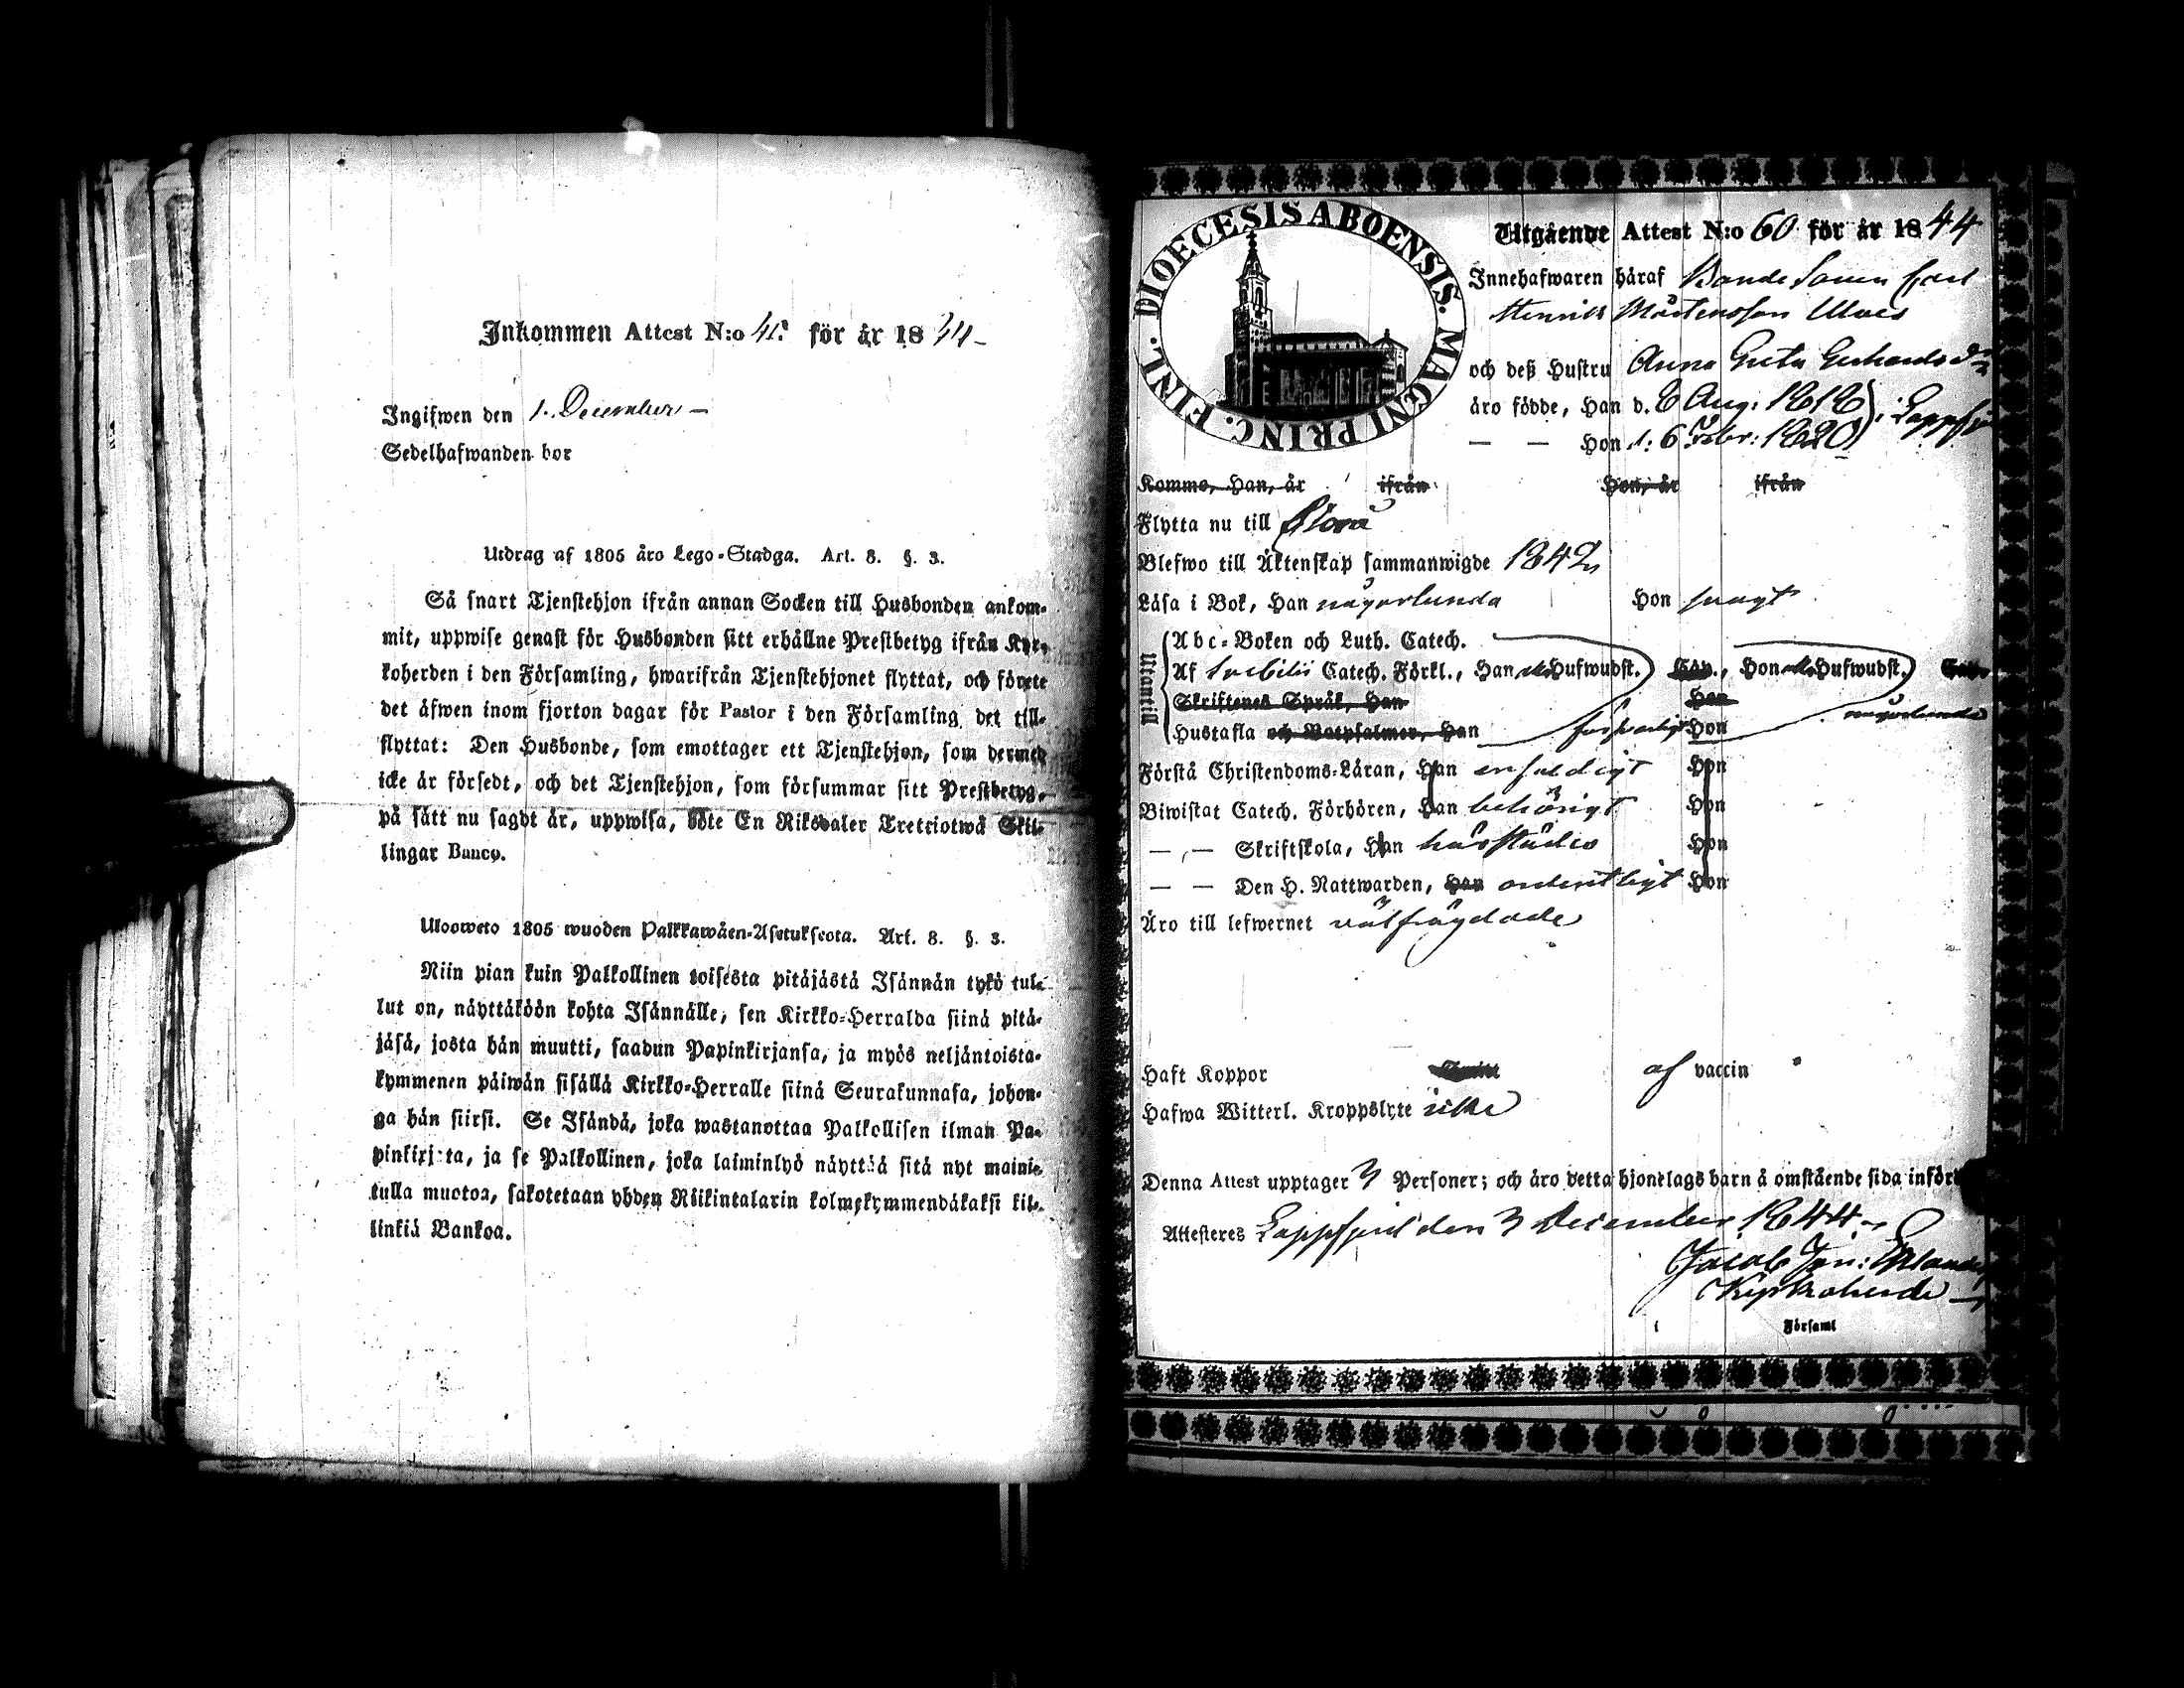 Inkommen Attest N:o för år 18
Ingifwen den 1. December
Sedelhafwanden bor
Utdrag af 1805 åro Lego-Stadga. Art. 8. §. 3.
Så snart Tjenstehjon ifrån annan Socken till Husbonden ankom-
mit, uppwise genast för Husbonden sitt erhållne Prestbetyg ifrån Kyr-
koherden i den Församling, hwarifrån Tjenstehjonet flyttat, och förete
det äfwen inom fjorton dagar för Pastor i den Församling det till-
flyttat: Den Husbonde, som emottager ett Tjenstehjon, som dermed
icke är försedt, och det Tjenstehjon, som försummar sitt Prestbetyg,
på sätt nu sagdt är, uppwisa, böte En Riksdaler Tretiotwå Skil-
lingar Banco.
Uloosweto 1805 wuoden Palkkawäen-Asetuksesta. Art. 8. §. 3.
Niin pian kuin Palkollinen toisesta pitäjästä Isännän tykö tul-
lut on, näyttäköön kohta Isännälle, sen Kirkko-Herralda siinä pitä-
jäsä, josta hän muutti, saadun Papinkirjansa, ja myös neljäntoista-
kymmenen päiwän sisällä Kirkko-Herralle siinä Seurakunnasa, johon-
ga hän siirsi. Se Isändä, joka wastanottaa Palkollisen ilman Pa-
pinkirjata, ja se Palkollinen, joka laiminlyö näyttää sitä nyt maini-
tulla muotoa, sakotetaan yhden Riikintalarin kolmekymmendäkaksi kil-
linkiä Bankoa.
DIOECESIS ABOENSIS. MAGNI PRINC. FINL.
Utgående Attest N:o 60 för år 1844
Innehafwaren häraf Bonde Sonen Carl
Henrik Mårtensson Ulves
och deß Hustru Anna Greta Gerhardsdr
äro födde, Han d. 8 Aug: 1818 i Lappfj
— — Hon d. 6 Febr: 1820
Komne, Han, år ifrån Hon, år ifrån
Flytta nu till
Blefwo till Äktenskap sammanwigde 1842
Läsa i Bok, Han någorlunda Hon swagt
Utantill
Abc-Boken och Luth. Catech.
Af Svebilii Catech. Förkl., Han Hufwudst. Cap., Hon Hufwudst.
Skriftenes Språk, Han Hon
Hustafla och Botpsalmer, Han försvarligt Hon någorlunda
Förstå Christendoms-Läran, Han enfaldigt Hon
Biwistat Catech. Förhören, Han behörigt Hon
— — Skriftskola, Han härstädes Hon
— — Den H. Nattwarden, Han ordentligt Hon
Äro till lefwernet välfrägdade
Haft Koppor af vaccin
Hafwa Witterl. Kroppslyte icke
Denna Attest upptager 3 Personer; och äro detta hjonelags barn å omstående sida införd
Attesteres Lappfjerd den 3 December 1844
Jacob Jon:
Kyrkoherde
i Församl